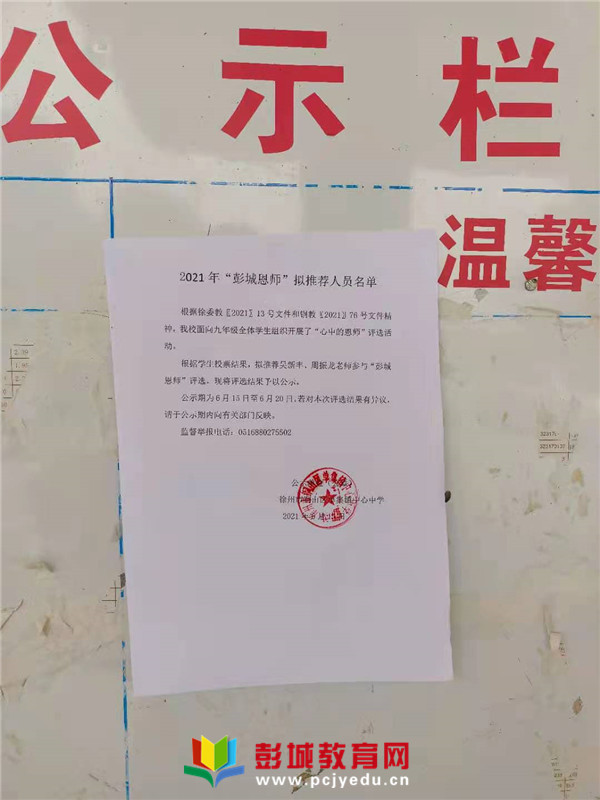 公示栏
温馨
2021年“彭城恩师”拟推荐人员名单
根据徐委教〖2021〗13号文件和铜教〖2021〗76号文件精
神，我校面向九年级全体学生组织开展了“心中的恩师”评选活
动。
根据学生投票结果，拟推荐吴新丰、周振龙老师参与“彭城
恩师”评选，现将评选结果予以公示。
公示期为6月15日至6月20日，若对本次评选结果有异议，
请于公示期内向有关部门反映。
监督举报电话：0516880275502
徐州
中心中学
2021年
彭城教育网
www.pcjyedu.cn